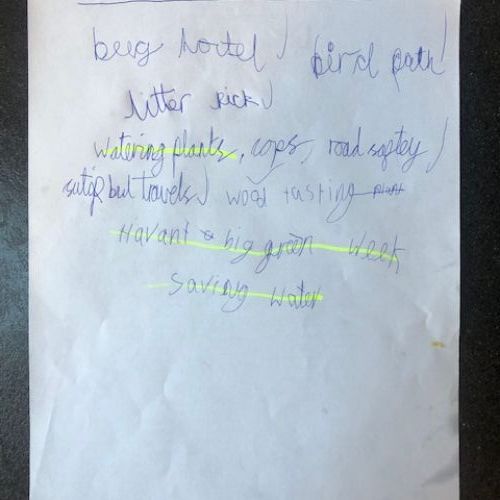 beeg hostel /
bird path /
litter kick /
watering plants, cops, road saftey /
but travels / wood tasting
Havant & big green week
Saving water